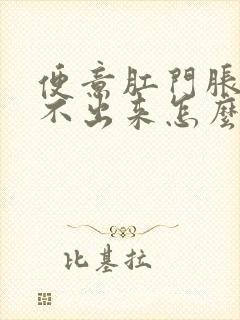 便意肛門脹
不出来怎麼
比基拉